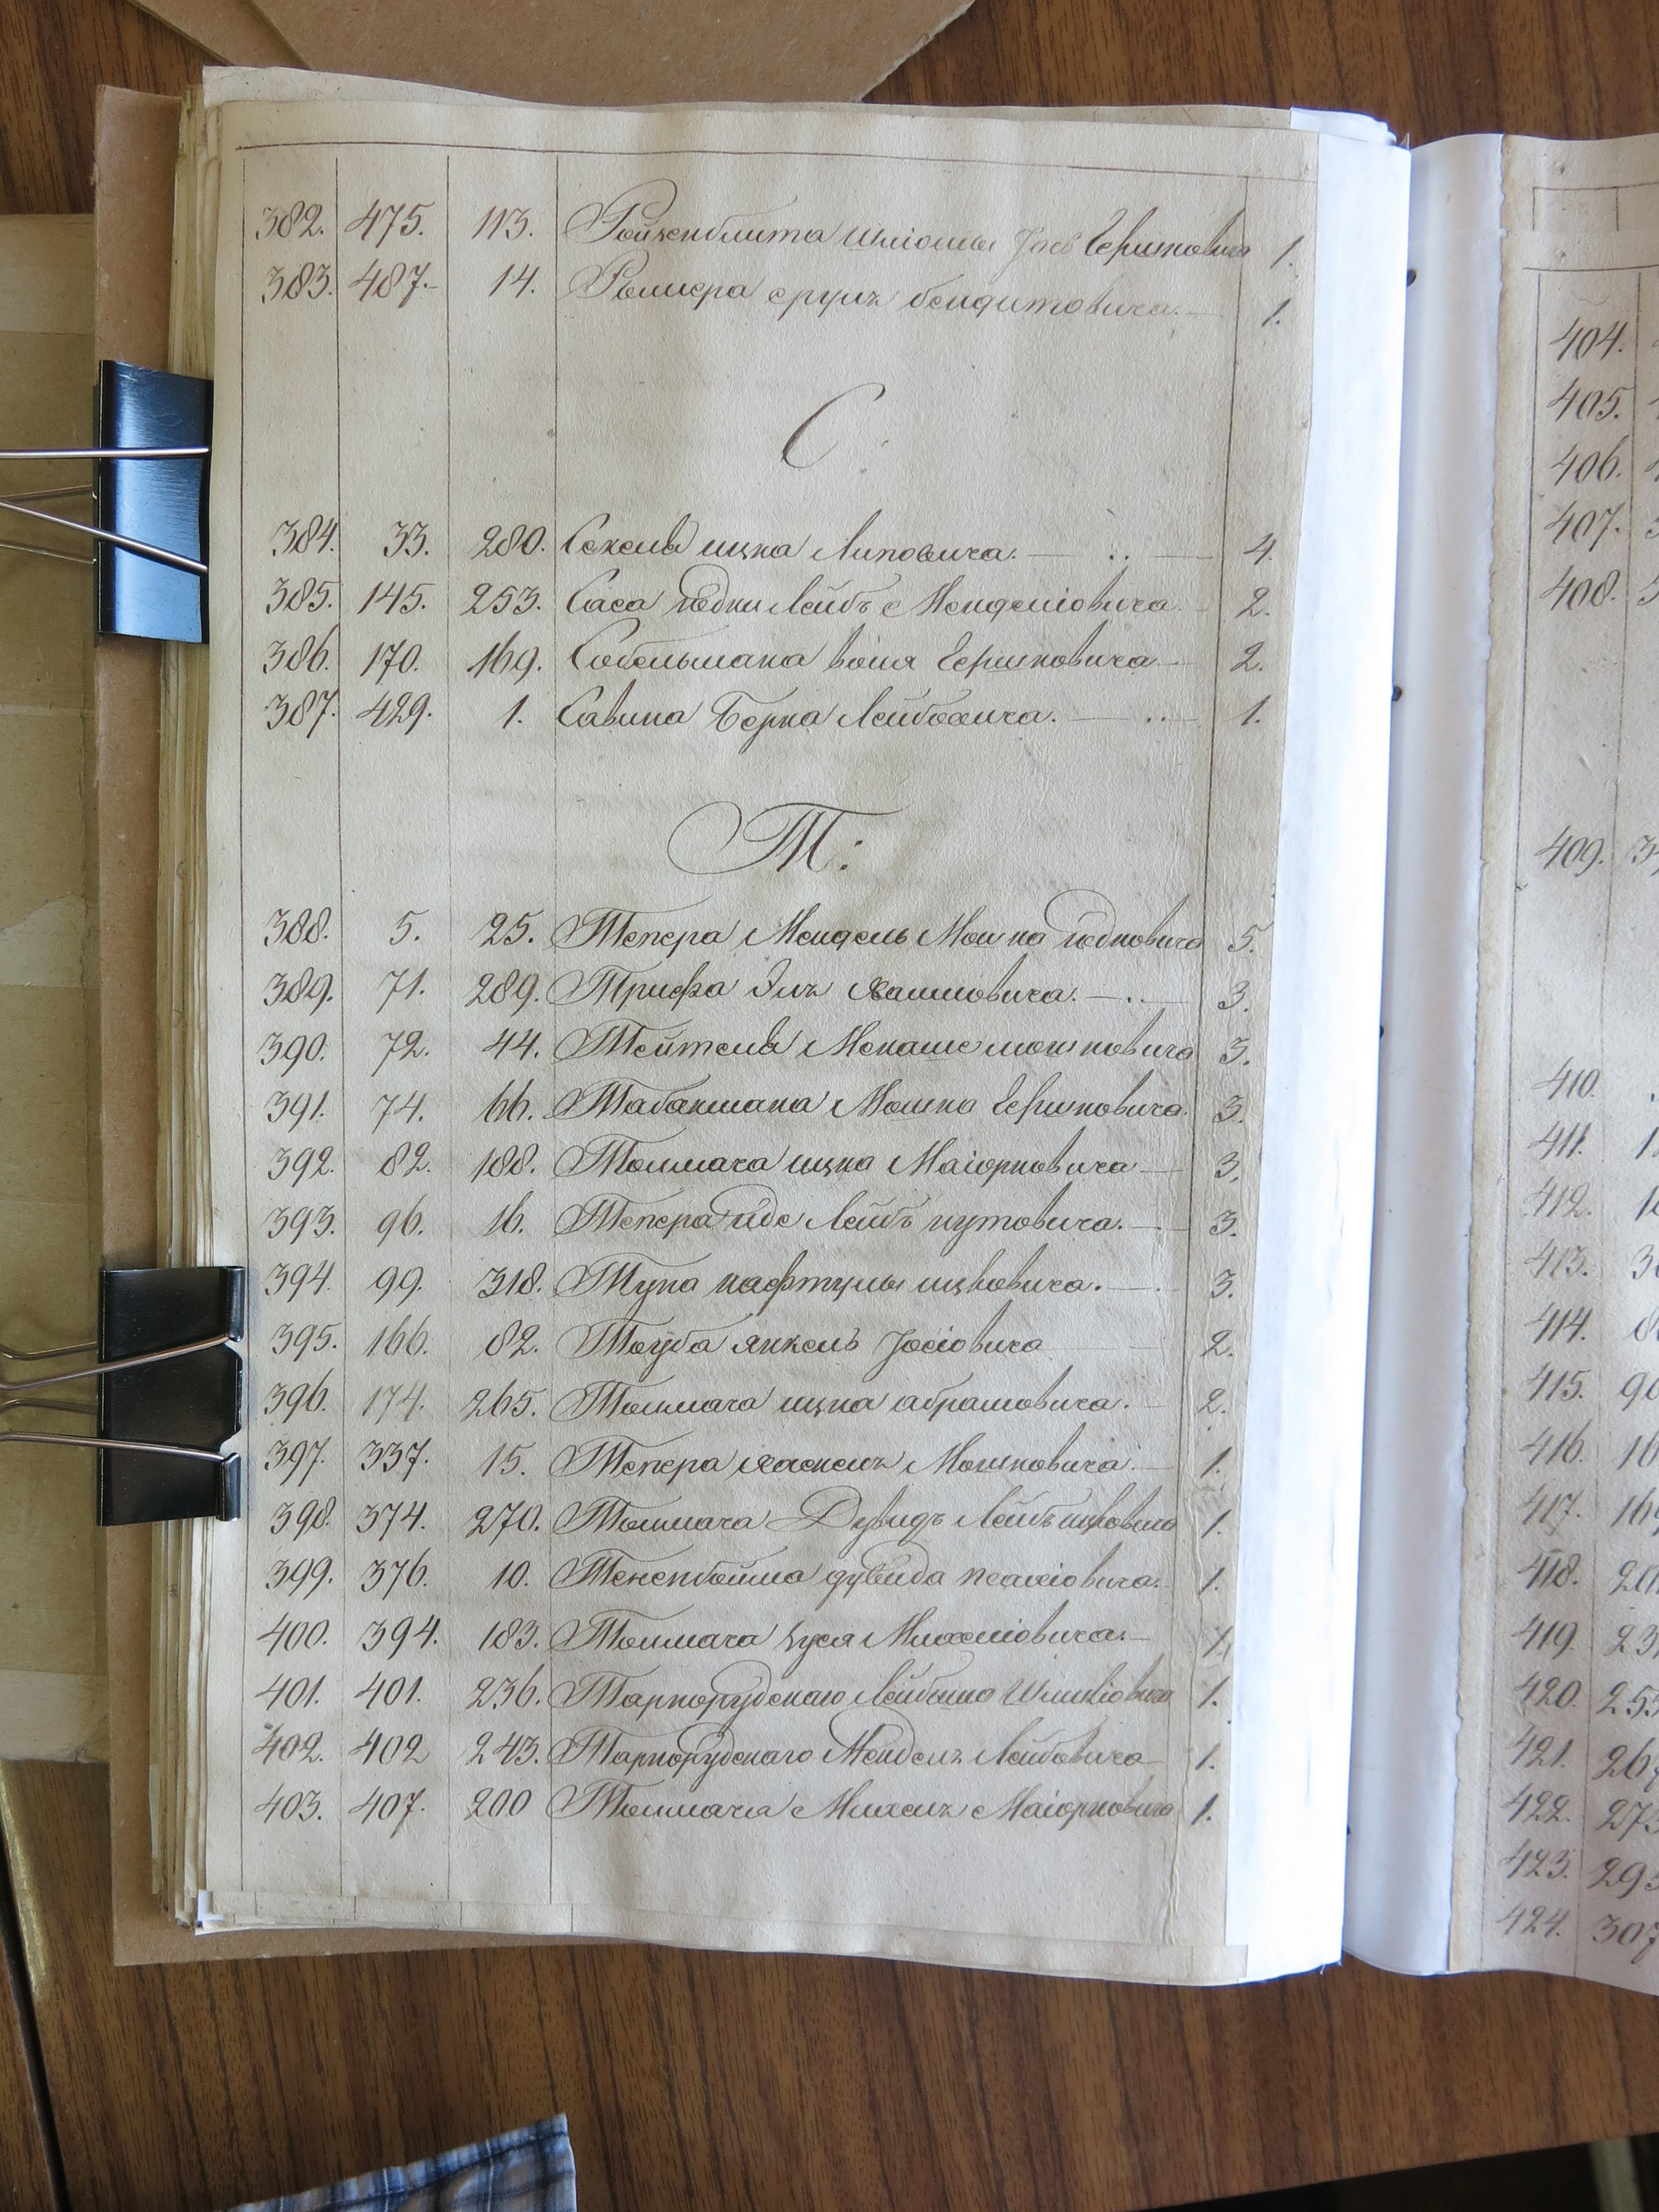 382. 475. 113. Ройзенблита Шліомы Іось Гершковича 1.
383. 487. 14. бендитовича. 1.
С
384. 33. 280. Секель ицка Липовича. 4.
385. 145. 253. Саса Лейбъ Менделіовича 2.
386. 170. 169. Собельмана Гершковича 2.
387. 429. 1. Савина Берка Лейбовича. 1.
Т:
388. 5. 25. Тепера Мендель Мошка іодковича 5.
389. 71. 289. Трифа Элъ Хаимовича. 3.
390. 72. 44. Тейтель Менаше мошковича 3.
391. 74. 66. Табакмана Мошка Гершковича. 3.
392. 82. 188. Толмача ицка Маіорковича 3.
393. 96. 16. Тепера Лейбъ нутовича. 3.
394. 99. 318. Тупа нафтулы ицковича. 3.
395. 166. 82. Тоуба янкель Іосіовича 2.
396. 174. 265. Толмача ицка абрамовича. 2.
397. 337. 15. Тепера хаскелъ Мошковича. 1.
398. 374. 270. Толмача Дувидъ Лейбъ ицковича 1.
399. 376. 10. Тененбойма дувида 1.
400. 394. 183. Толмача зуся Михеліовича. 1.
401. 401. 236. Тарнорудскаго Лейбыша 1.
402. 402 243. Тарнорудскаго Менделъ Лейбовича 1.
403. 407. 200 Толмача Михелъ Маіорковича 1.
404.
405.
406.
407.
408.
409.
410.
411.
412.
413.
414.
415.
416.
417.
418.
419.
420.
421.
422.
423.
424.